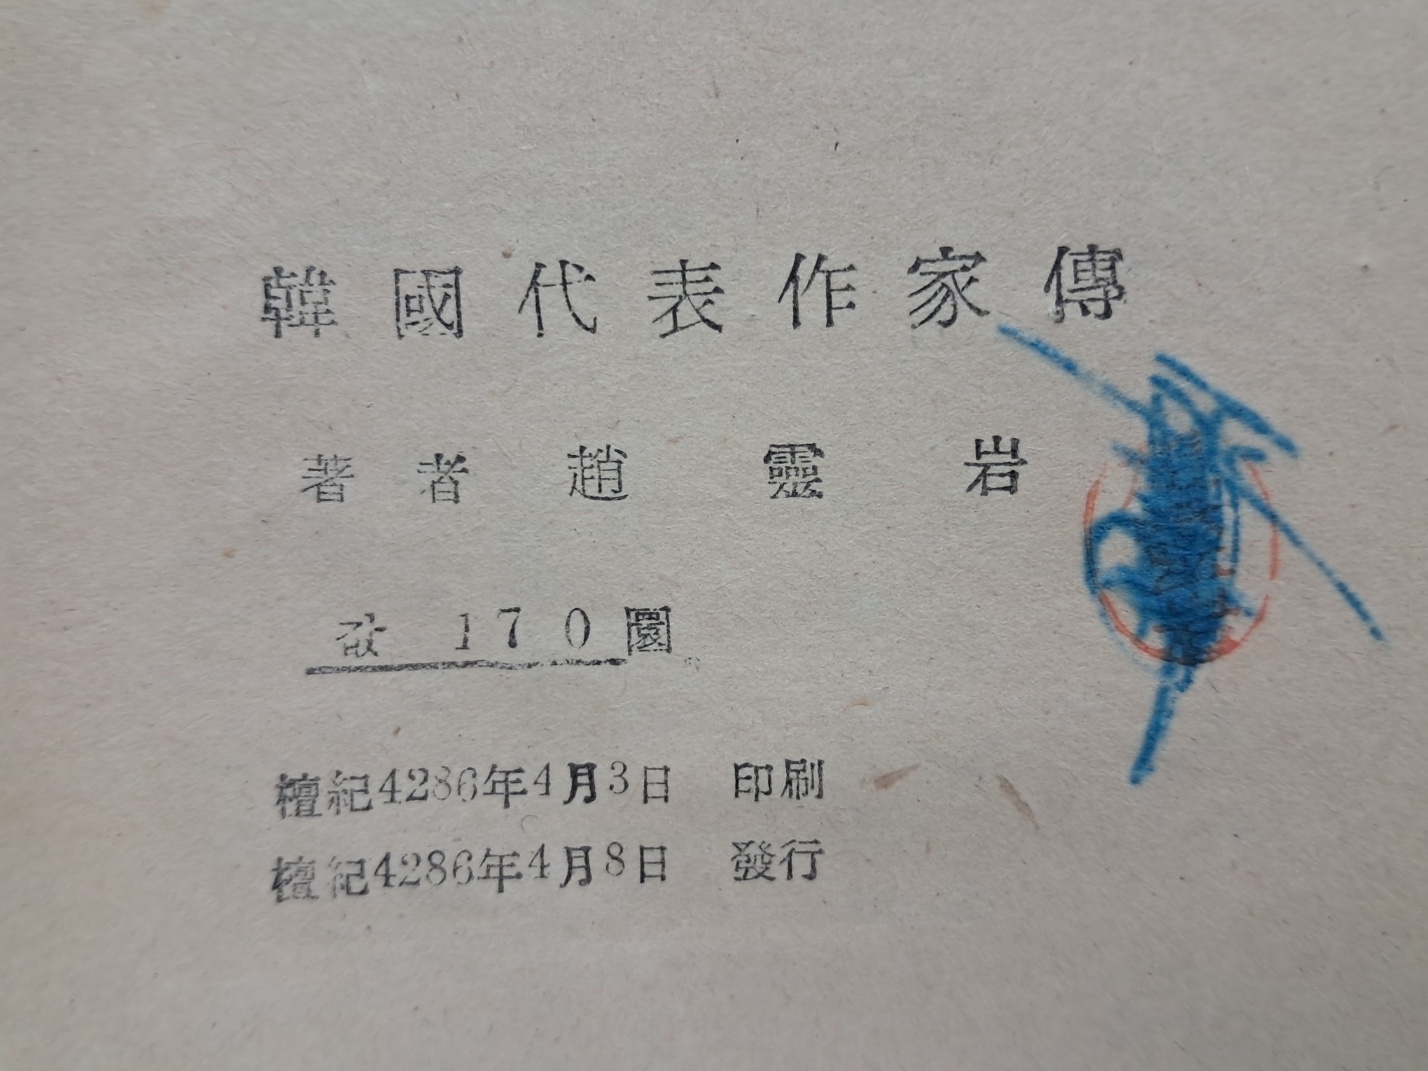 韓國代表作家傳
著者 趙靈岩
값 170圜
檀紀4286年4月3日 印刷
檀紀4286年4月8日 發行